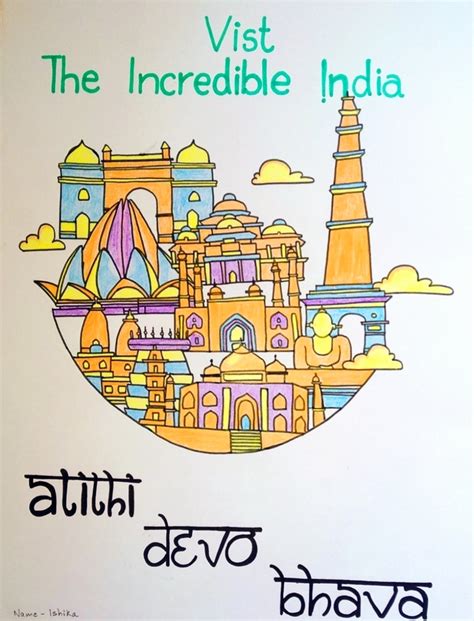 Vist
The Incredible !ndia
atithi
devo
bhava
Name - Ishika